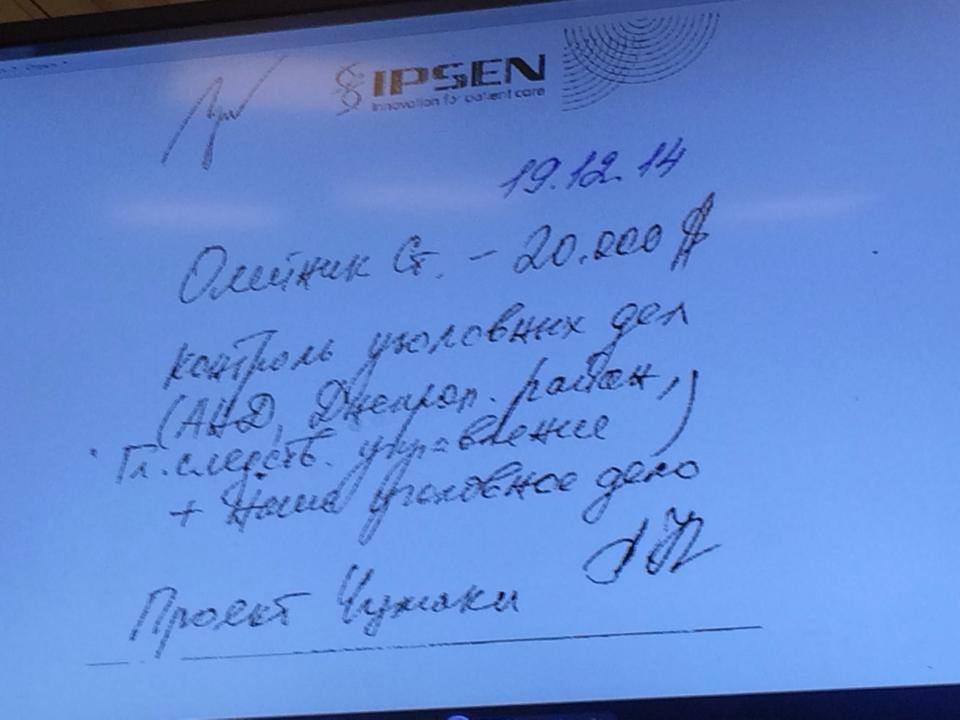 IPSEN
Innovation for patient care
19.12.14
Олейник Ст. – 20.000 $
контроль уголовних дел
(АНД, Днепроп. район,
Гл. следств. управление)
+ Наше уголовное дело
Проект Чумаки